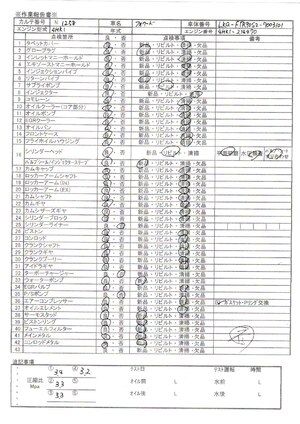 ※作業報告書※
カルテ番号 N 1258 車名 フォワード 車体番号 LKG-FTR90S2-
エンジン型式 4HK1 年式 エンジン番号 4HK1-
点検箇所 良・否 点検事項 備考
1 タペットカバー 良・否 新品・リビルト・清掃・欠品
2 グロープラグ 良・否 新品・リビルト・清掃・欠品
3 インレットマニーホールド 良・否 新品・リビルト・清掃・欠品
4 エキゾーストマニーホールド 良・否 新品・リビルト・清掃・欠品
5 インジェクションパイプ 良・否 新品・リビルト・清掃・欠品
6 リターンパイプ 良・否 新品・リビルト・清掃・欠品
7 サプライポンプ 良・否 新品・リビルト・清掃・欠品
8 インジェクター 良・否 新品・リビルト・清掃・欠品
9 コモレーン 良・否 新品・リビルト・清掃・欠品
10 オイルクーラー(コア部分) 良・否 新品・リビルト・清掃・欠品
11 オイルポンプ 良・否 新品・リビルト・清掃・欠品
12 EGRクーラー 良・否 新品・リビルト・清掃・欠品
13 オイルパン 良・否 新品・リビルト・清掃・欠品
14 フロントケース 良・否 新品・リビルト・清掃・欠品
15 フライホイルハウジング 良・否 新品・リビルト・清掃・欠品
16 シリンダーヘッド 良・否 新品・リビルト・清掃・欠品
良・否 新品・リビルト・清掃・欠品
17 カムキャップ 良・否 新品・リビルト・清掃・欠品
18 ロッカーアームシャフト 良・否 新品・リビルト・清掃・欠品
19 ロッカーアーム(IN) 良・否 新品・リビルト・清掃・欠品
20 ロッカーアーム(EX) 良・否 新品・リビルト・清掃・欠品
21 カムシャフト 良・否 新品・リビルト・清掃・欠品
22 カムギヤ 良・否 新品・リビルト・清掃・欠品
23 カムシザーズギヤ 良・否 新品・リビルト・清掃・欠品
24 シリンダーブロック 良・否 新品・リビルト・清掃・欠品
25 シリンダーライナー 良・否 新品・リビルト・清掃・欠品
26 ピストン 良・否 新品・リビルト・清掃・欠品
27 コンロッド 良・否 新品・リビルト・清掃・欠品
28 クランクシャフト 良・否 新品・リビルト・清掃・欠品
29 クランクギヤ 良・否 新品・リビルト・清掃・欠品
30 クランクプーリー 良・否 新品・リビルト・清掃・欠品
31 アイドラギヤ 良・否 新品・リビルト・清掃・欠品
32 ターボーチャージャー 良・否 新品・リビルト・清掃・欠品
33 ウォーターポンプ 良・否 新品・リビルト・清掃・欠品
34 EGRバルブ 良・否 新品・リビルト・清掃・欠品
35 良・否 新品・リビルト・清掃・欠品
36 エアーコンプレッサー 良・否 新品・リビルト・清掃・欠品 ガスケット・Pリング交換
37 オイルエレメント 良・否 新品・リビルト・清掃・欠品
38 サーモスタッド 良・否 新品・リビルト・清掃・欠品
39 ピストンリング 良・否 新品・リビルト・清掃・欠品
40 フューエルフィルター 良・否 新品・リビルト・清掃・欠品
41 メインメタル 良・否 新品・リビルト・清掃・欠品
42 コンロッドメタル 良・否 新品・リビルト・清掃・欠品
43
追記事項
圧縮比 Mpa ① 3.4 ④ 3.2 テスト日 テスト運転 時間
② 3.3 オイル前 L 水前 L
③ 3.3 オイル後 L 水後 L